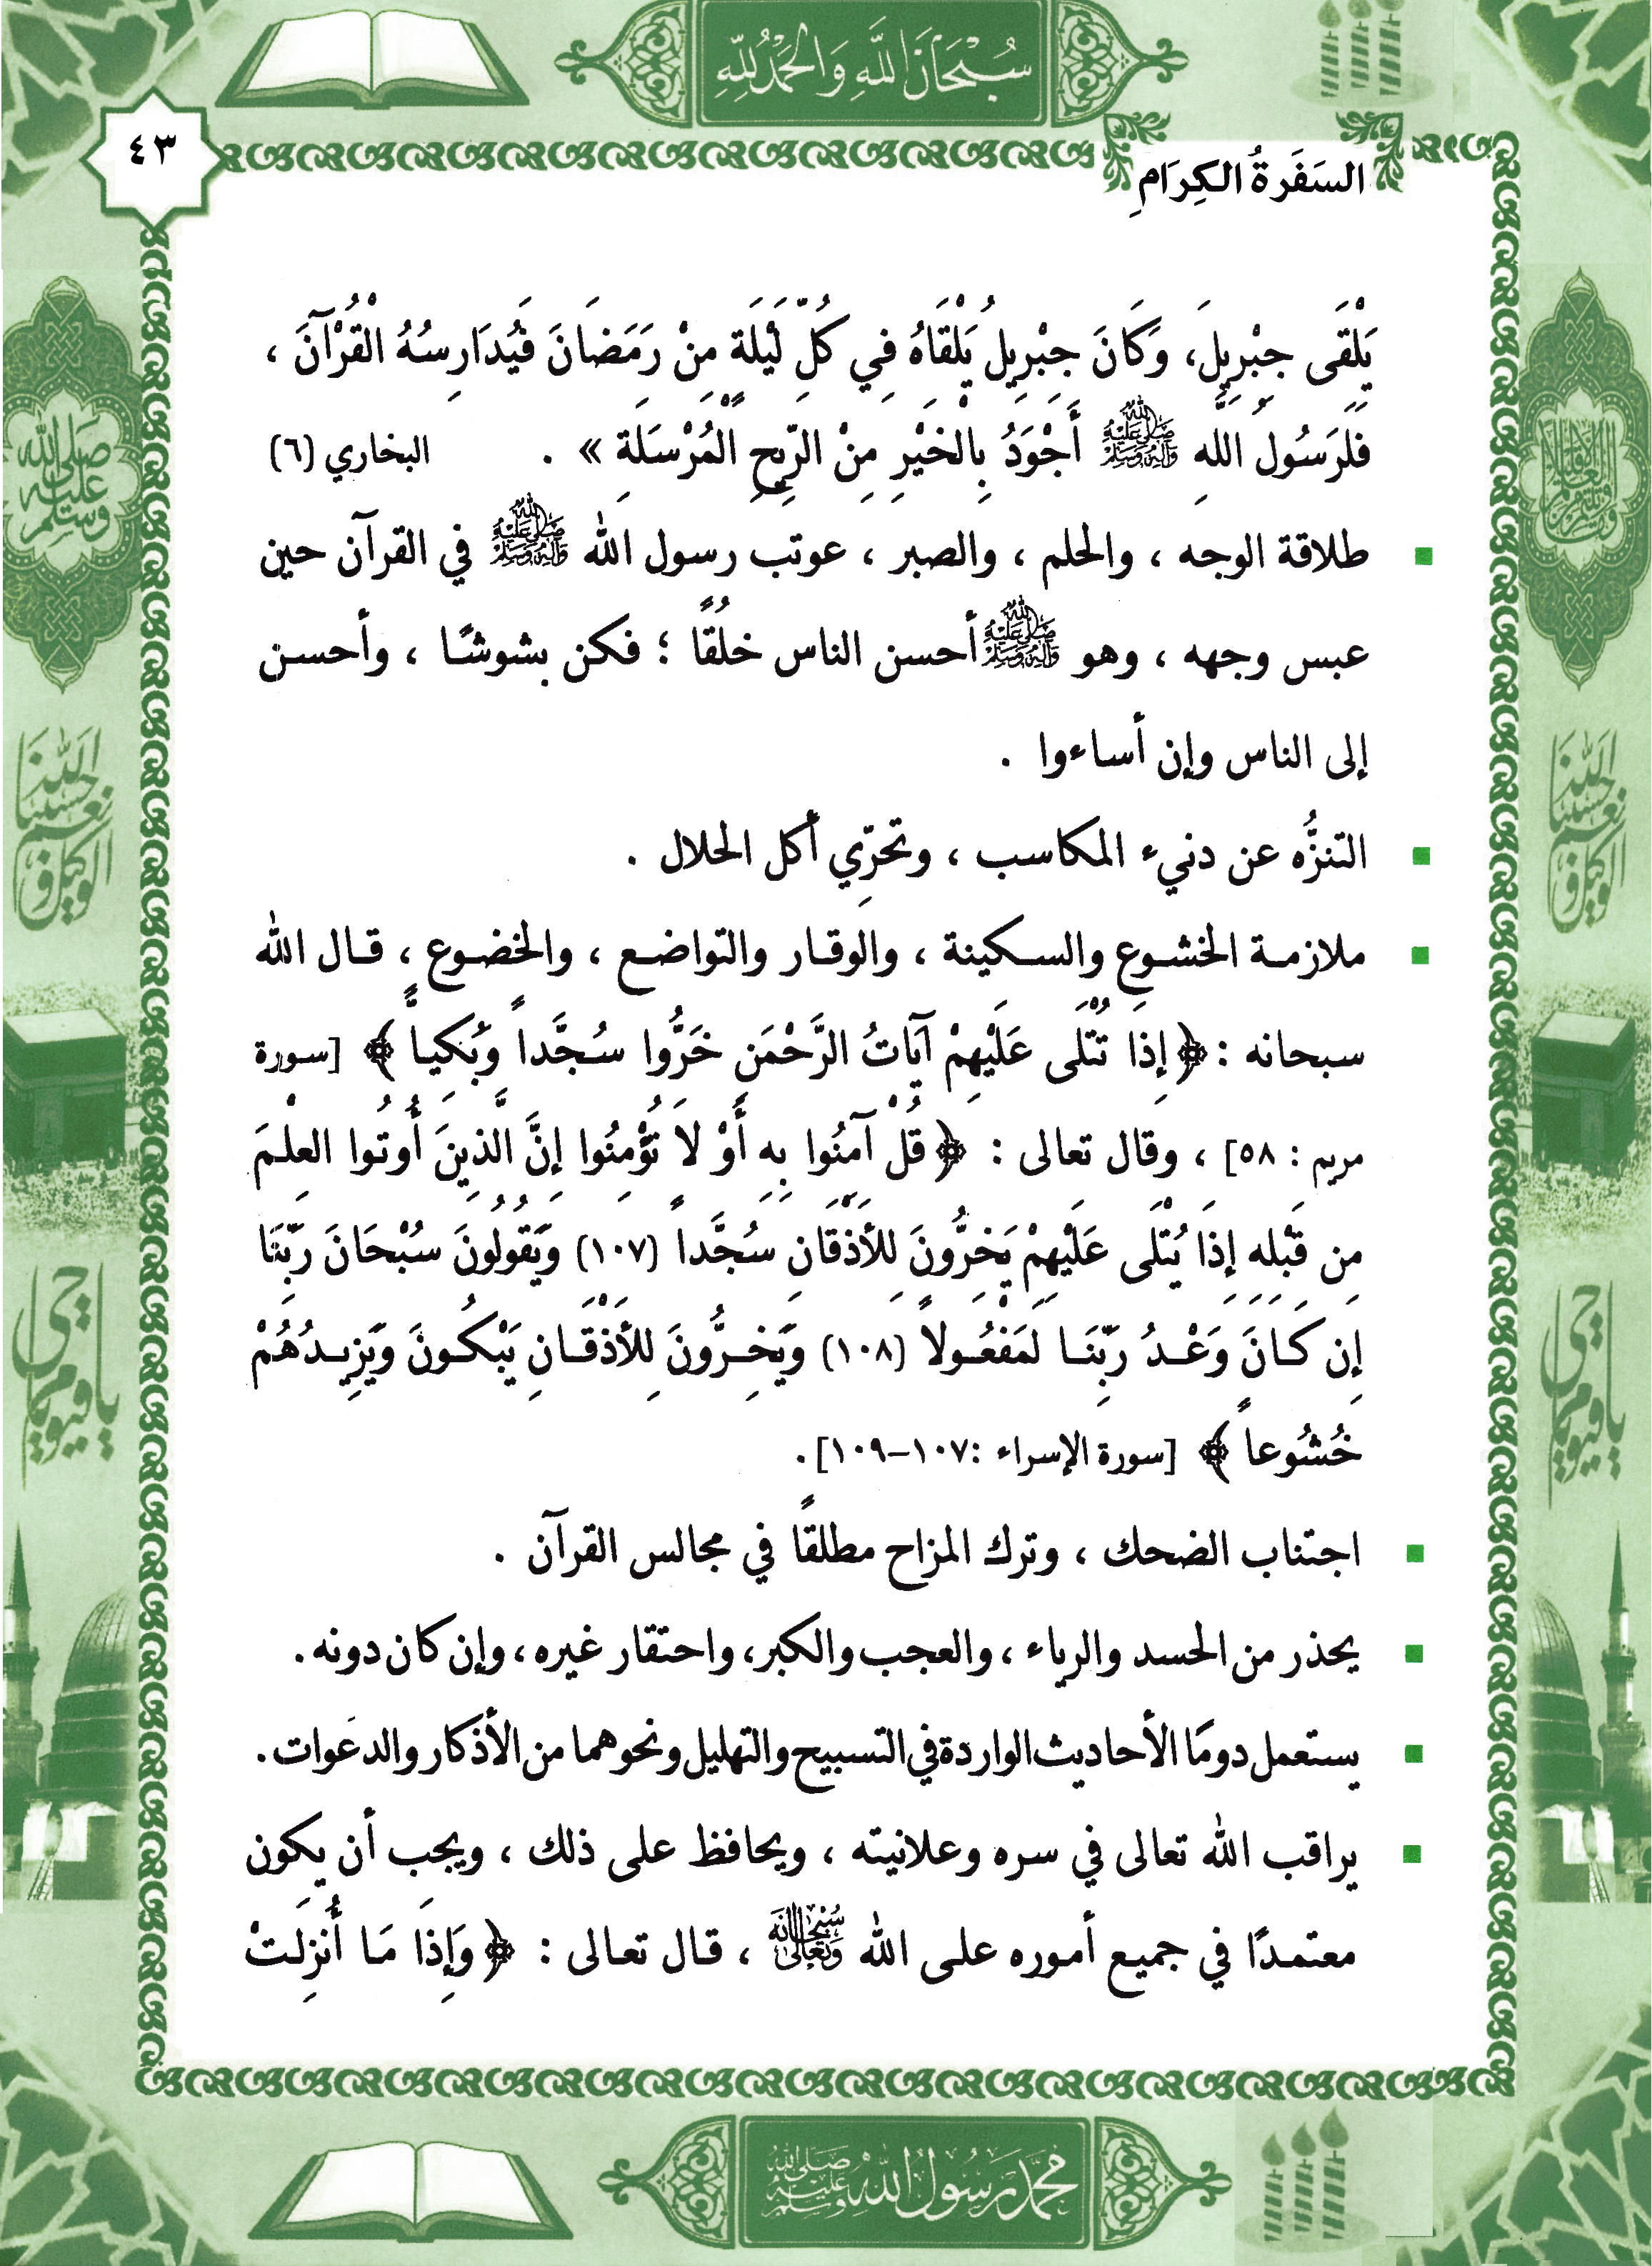 سُبْحَانَ اللَّهِ وَالْحَمْدُ لِلَّهِ
٤٣
السَفَرَةُ الكِرَامِ
يَلْقَى جِبْرِيلَ، وَكَانَ جِبْرِيلُ يَلْقَاهُ فِي كُلِّ لَيْلَةٍ مِنْ رَمَضَانَ فَيُدَارِسُهُ الْقُرْآنَ ،
فَلَرَسُولُ اللَّهِ ﷺ أَجْوَدُ بِالْخَيْرِ مِنْ الرِّيحِ الْمُرْسَلَةِ » . البخاري (٦)
▪ طلاقة الوجه ، والحلم ، والصبر ، عوتب رسول الله ﷺ في القرآن حين
عبس وجهه ، وهو ﷺ أحسن الناس خلُقًا ؛ فكن بشوشًا ، وأحسن
إلى الناس وإن أساءوا .
▪ التنزُّه عن دنيء المكاسب ، وتحرِّي أكل الحلال .
▪ ملازمة الخشوع والسكينة ، والوقار والتواضع ، والخضوع ، قال الله
سبحانه : ﴿ إِذَا تُتْلَى عَلَيْهِمْ آيَاتُ الرَّحْمَنِ خَرُّوا سُجَّداً وَبُكِياًّ ﴾ [سورة
مريم : ٥٨] ، وقال تعالى : ﴿ قُلْ آمِنُوا بِهِ أَوْ لاَ تُؤْمِنُوا إِنَّ الَّذِينَ أُوتُوا العِلْمَ
مِن قَبْلِهِ إِذَا يُتْلَى عَلَيْهِمْ يَخِرُّونَ لِلأَذْقَانِ سُجَّداً (١٠٧) وَيَقُولُونَ سُبْحَانَ رَبِّنَا
إِن كَانَ وَعْدُ رَبِّنَا لَمَفْعُولاً (١٠٨) وَيَخِرُّونَ لِلأَذْقَانِ يَبْكُونَ وَيَزِيدُهُمْ
خُشُوعاً ﴾ [سورة الإسراء :١٠٧–١٠٩].
▪ اجتناب الضحك ، وترك المزاح مطلقًا في مجالس القرآن .
▪ يحذر من الحسد والرياء ، والعجب والكبر، واحتقار غيره ، وإن كان دونه .
▪ يستعمل دومًا الأحاديث الواردة في التسبيح والتهليل ونحوهما من الأذكار والدعَوات .
▪ يراقب الله تعالى في سره وعلانيته ، ويحافظ على ذلك ، ويجب أن يكون
معتمدًا في جميع أموره على الله سُبْحَانَهُ وَتَعَالَى ، قال تعالى : ﴿ وَإِذَا مَا أُنزِلَتْ
صلى الله عليه وسلم
حسبنا الله ونعم الوكيل
حسبنا الله ونعم الوكيل
يا حي يا قيوم
يا حي يا قيوم
محمد رسول الله صلى الله عليه وسلم